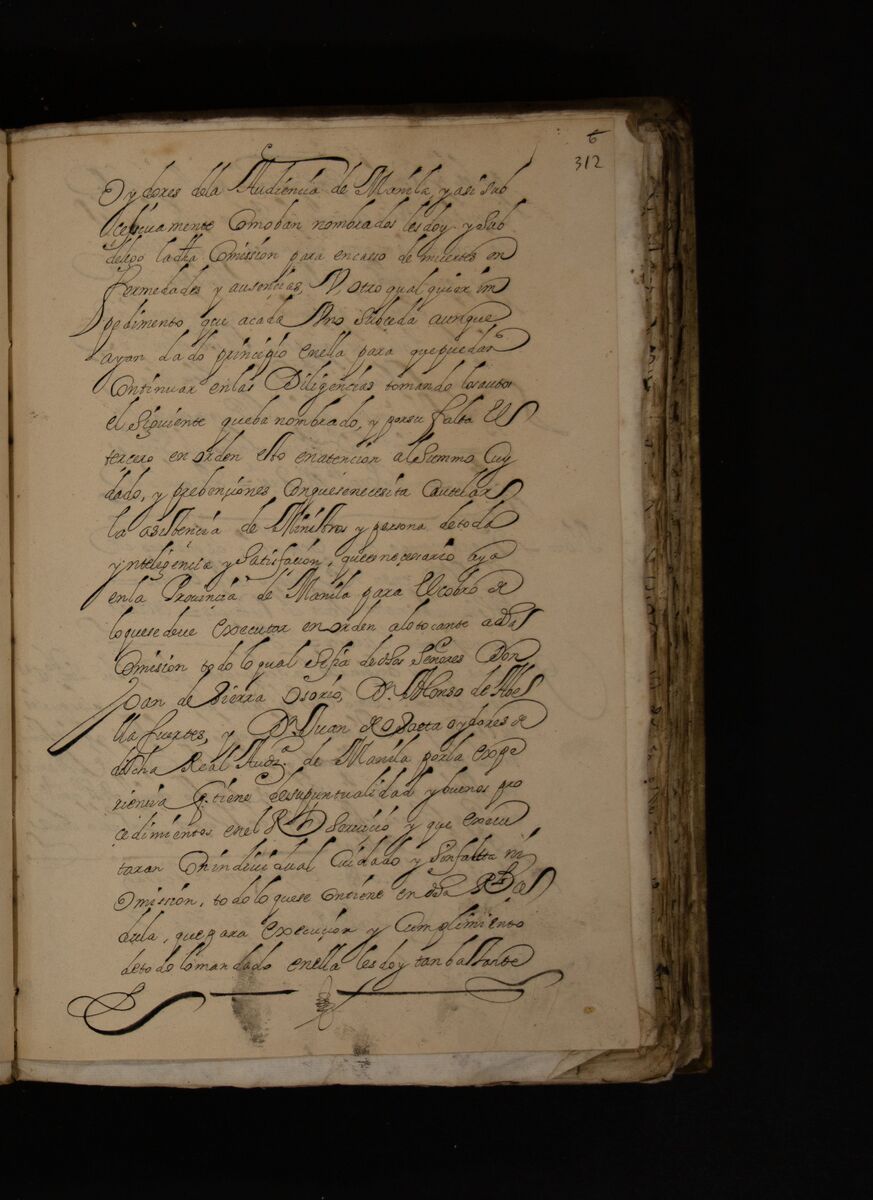 6
312
Oydores dela Audiencia de Manila, y asi sub
cesiuamente Como ban nombrados les doy y Sub
delego la dha Comission para en casso de muertes en
fermedades y ausencias, V, otro qual quier im
pedimento que acada Vno Subceda aunque
ayan dado principio enella para que puedan
Continuar en las Diligencias tomando los autos
el Siguiente que ba nombrado, y por su falta El
tercero en orden esto en atencion al Summo Cuy
dado, y prebenciones Con que se necesita Cautelar
la asistencia de Ministros y persona de toda
ynteligencia y Satisfacion, que es necesario aya
en la Prouincia de Manila para El cobro de
lo que se deue executar en orden alo tocante a dha
Comision todo lo qual Se fia de dhos Señores Don
Joan de Sierra Osorio, Dn. Alfonso de Abe
lla fuertes, y Dn. Juan de Ozaeta oydores de
dicha Real Audza. de Manila por la Expe
riencia q. tiene de su puntualidad y buenos pro
cedimientos en el Rl Seruicio y que execu
taran Con indiuidual Cuidado y Sin falta ni
Omission, todo lo que se Contiene en dha Rl
dula, que para execucion y Cumplimiento
de todo lo mandado enella les doy tan bastante